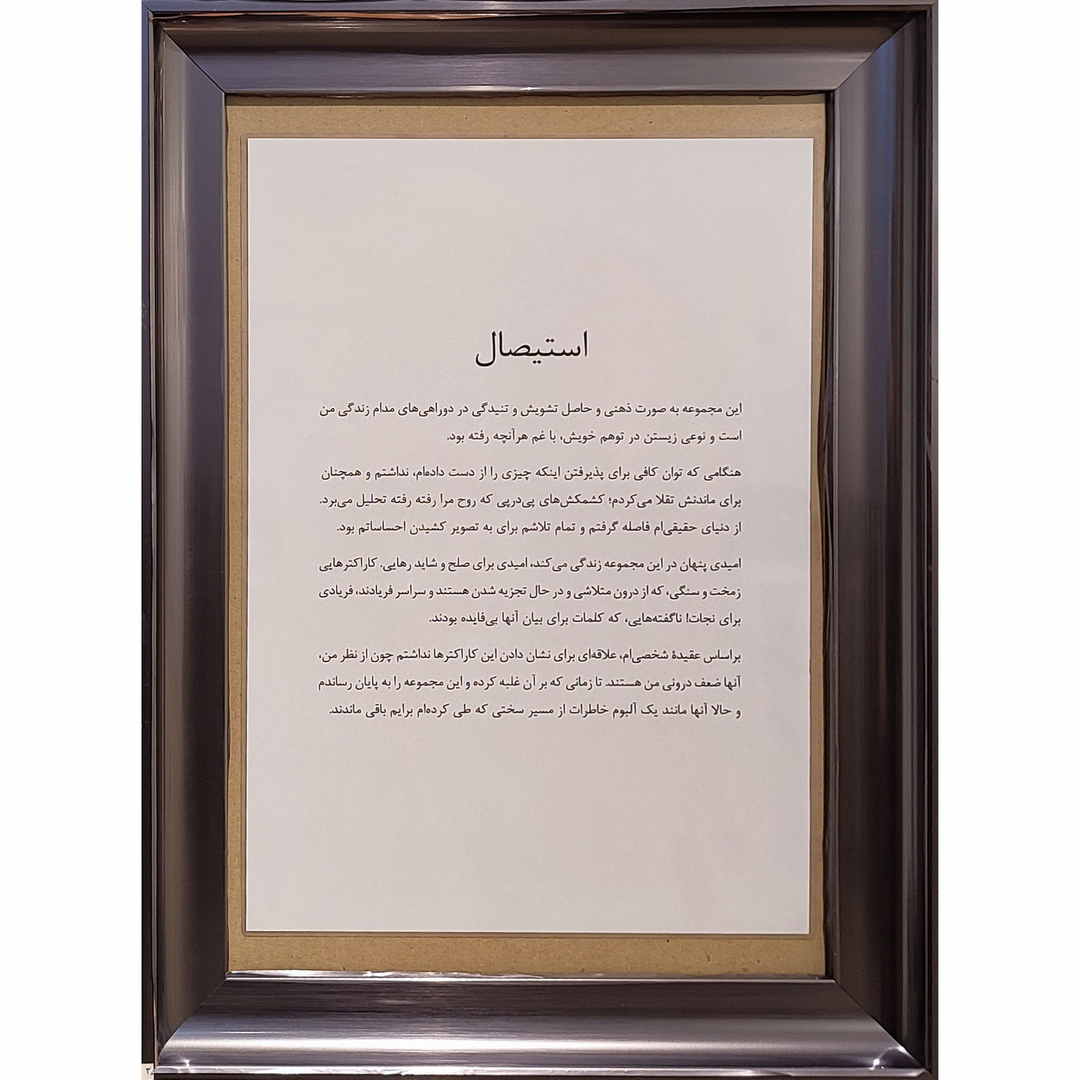 استیصال
این مجموعه به صورت ذهنی و حاصل تشویش و تنیدگی در دوراهی‌های مدام زندگی من
است و نوعی زیستن در توهم خویش، با غم هرآنچه رفته بود.
هنگامی که توان کافی برای پذیرفتن اینکه چیزی را از دست داده‌ام، نداشتم و همچنان
برای ماندنش تقلا می‌کردم؛ کشمکش‌های پی‌درپی که روح مرا رفته رفته تحلیل می‌برد.
از دنیای حقیقی‌ام فاصله گرفتم و تمام تلاشم برای به تصویر کشیدن احساساتم بود.
امیدی پنهان در این مجموعه زندگی می‌کند، امیدی برای صلح و شاید رهایی. کاراکترهایی
زمخت و سنگی، که از درون متلاشی و در حال تجزیه شدن هستند و سراسر فریادند، فریادی
برای نجات! ناگفته‌هایی، که کلمات برای بیان آنها بی‌فایده بودند.
براساس عقیدهٔ شخصی‌ام، علاقه‌ای برای نشان دادن این کاراکترها نداشتم چون از نظر من،
آنها ضعف درونی من هستند. تا زمانی که بر آن غلبه کرده و این مجموعه را به پایان رساندم
و حالا آنها مانند یک آلبوم خاطرات از مسیر سختی که طی کرده‌ام برایم باقی ماندند.